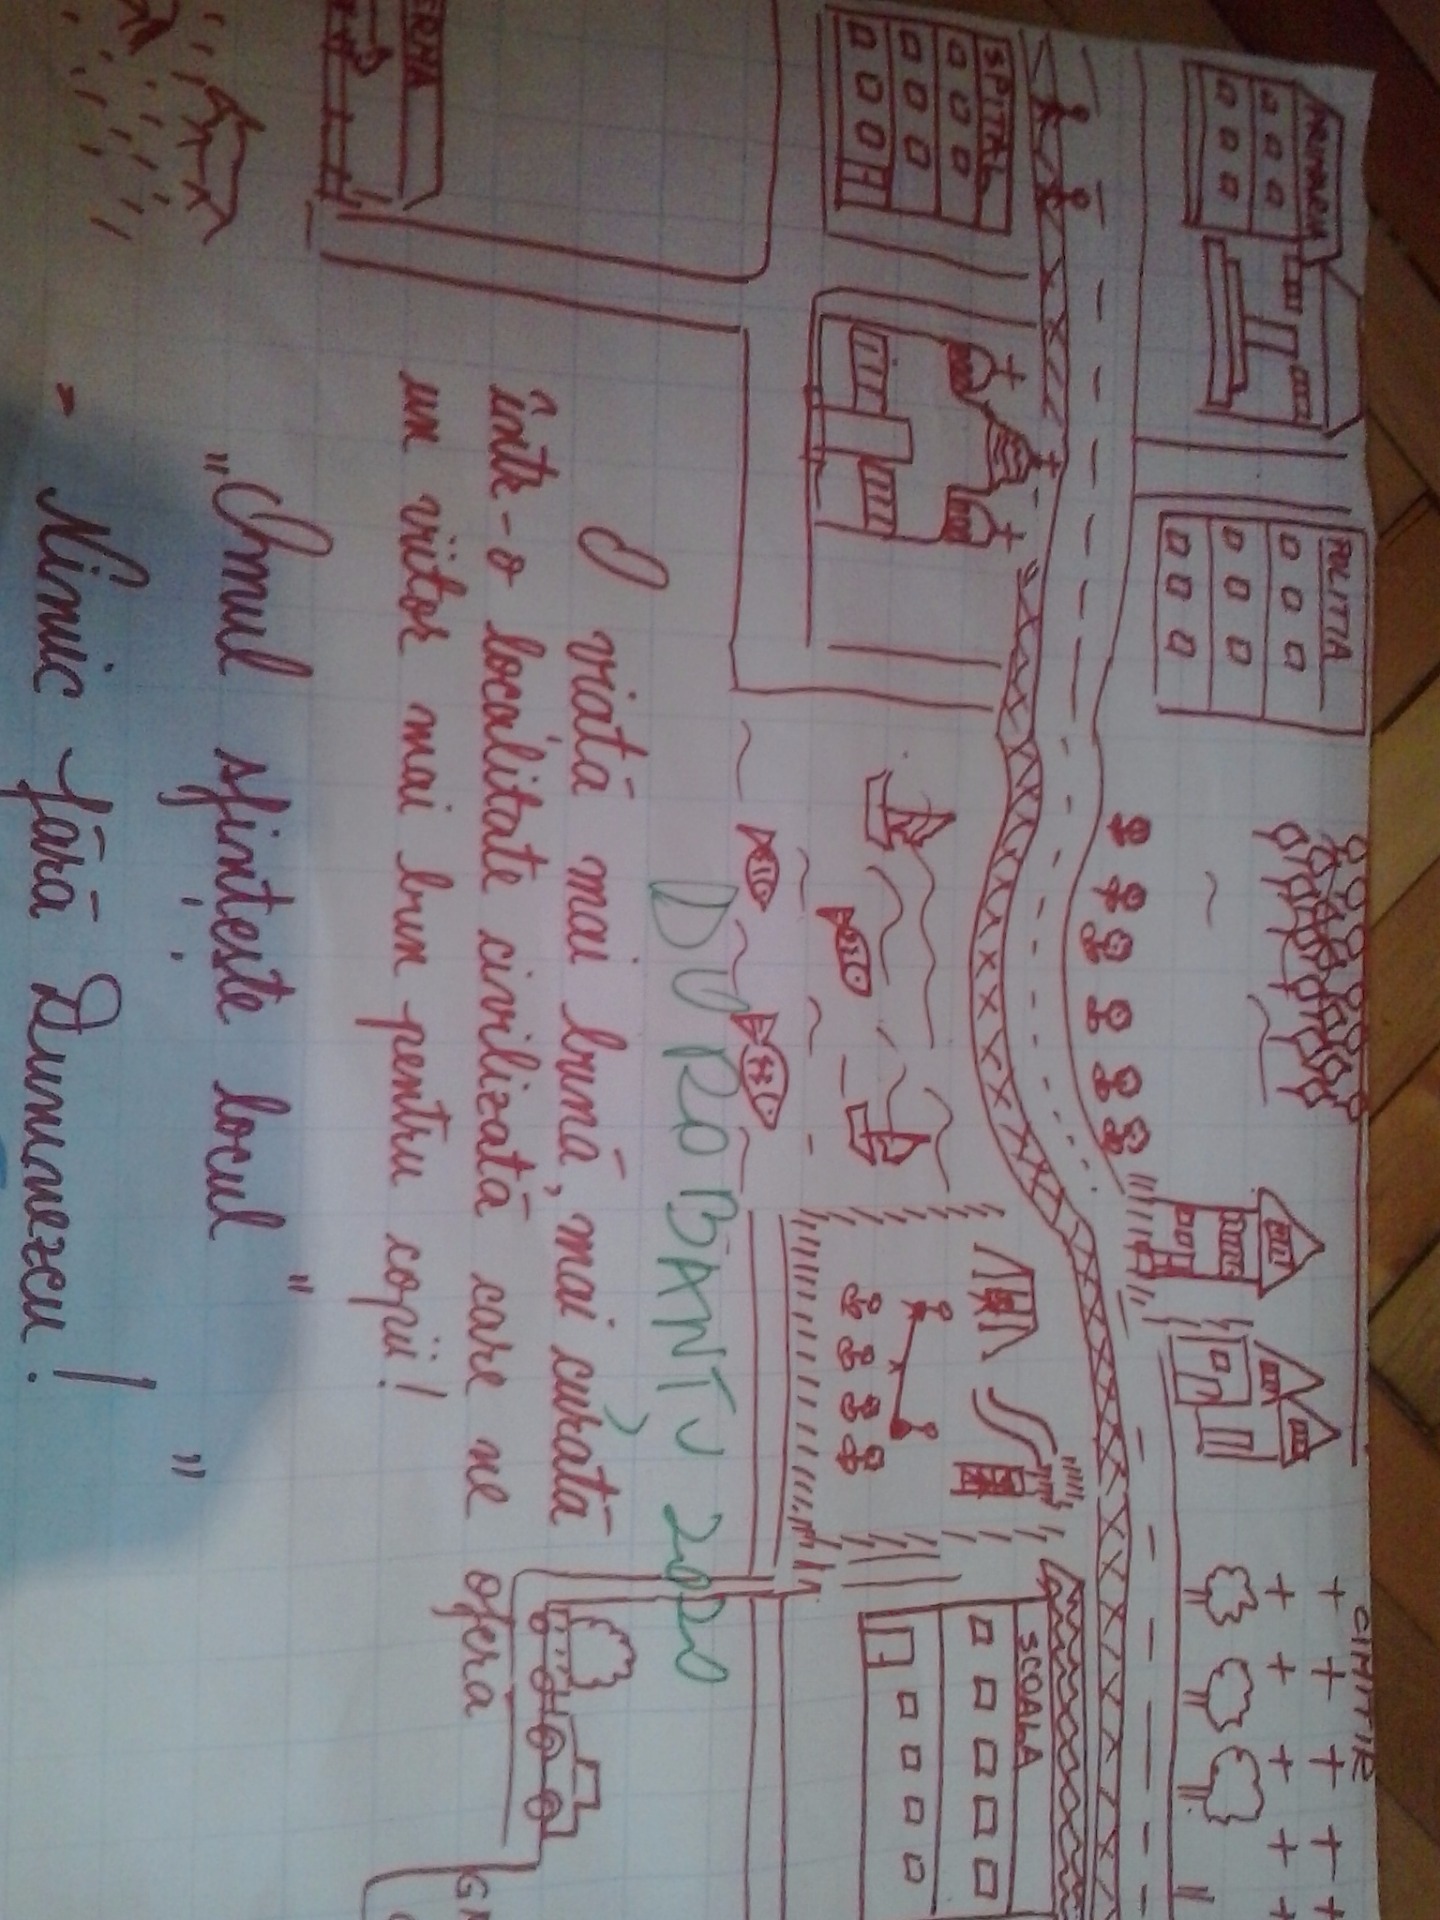 CIMITIR
PRIMARIA
POLITIA
SPITAL
SCOALA
DOROBANȚU 2020
O viată mai bună, mai curată
într-o localitate civilizată care ne oferă
un viitor mai bun pentru copii!
"Omul sfințește locul"
- Nimic fără Dumnezeu! "